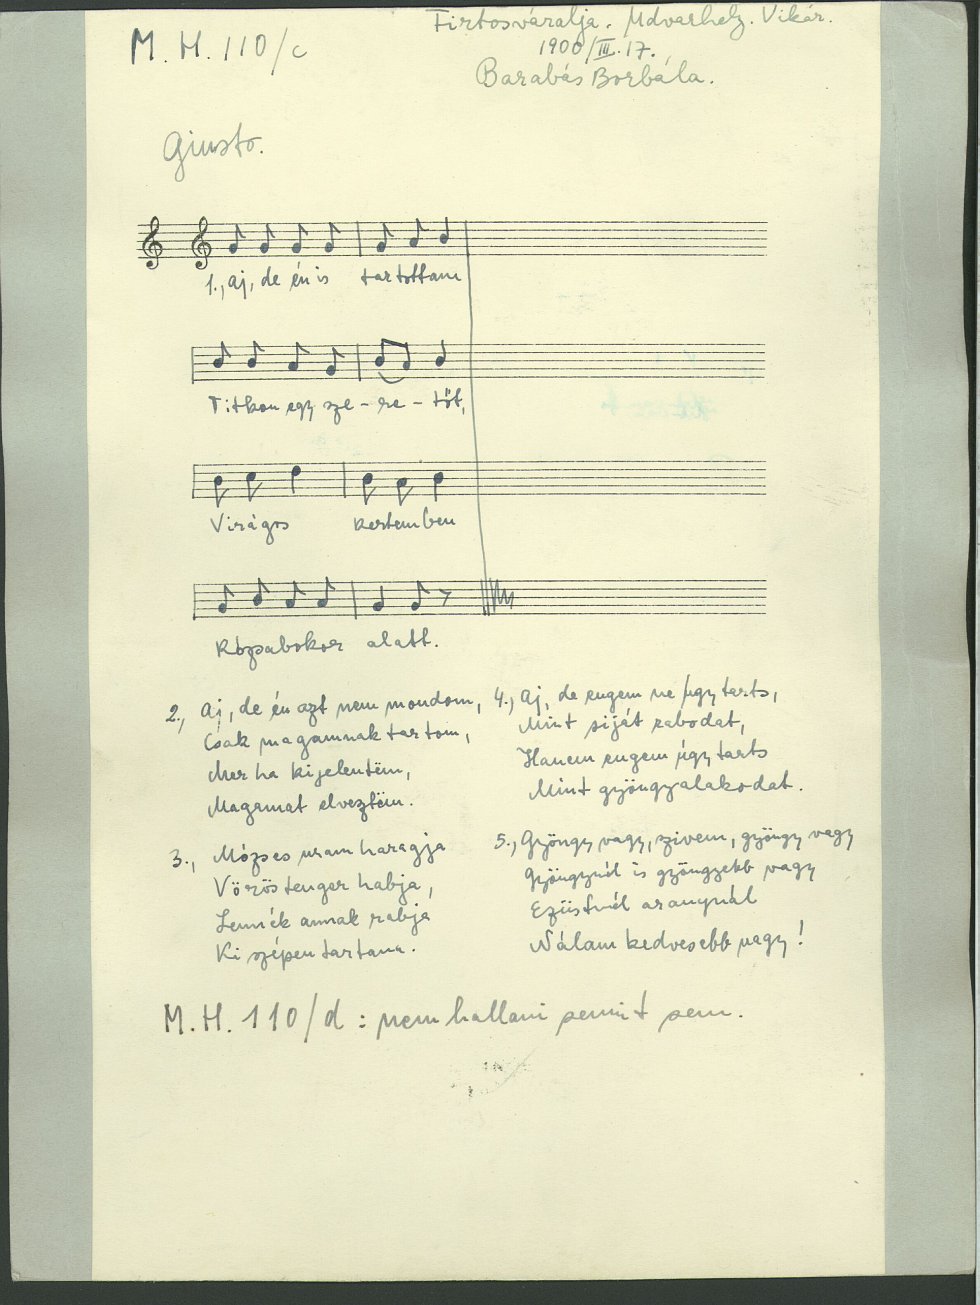 M.H. 110/c
Firtosváralja. Udvarhely. Vikár.
1900/III.17.
Barabás Borbála.
Giusto.
1., Aj, de én is tartottam
Titkon egy sze-re-tőt,
Virágos kertemben
Rózsabokor alatt.
2., Aj, de én azt nem mondom,
Csak magamnak tartom,
Mer ha kijelentëm,
Magamat elvesztëm.
3., Mózses uram haragja
Vörös tenger habja,
Lennék annak rabja
Ki szépen tartana.
4., Aj, de engem ne úgy tarts,
Mint siját rabodat,
Hanem engem úgy tarts
Mint gyöngyalakodat.
5., Gyöngy vagy, szivem, gyöngy vagy
Gyöngynél is gyöngyebb vagy
Ezüstnél aranynál
Nálam kedvesebb vagy!
M.H. 110/d : nem hallani semmit sem.